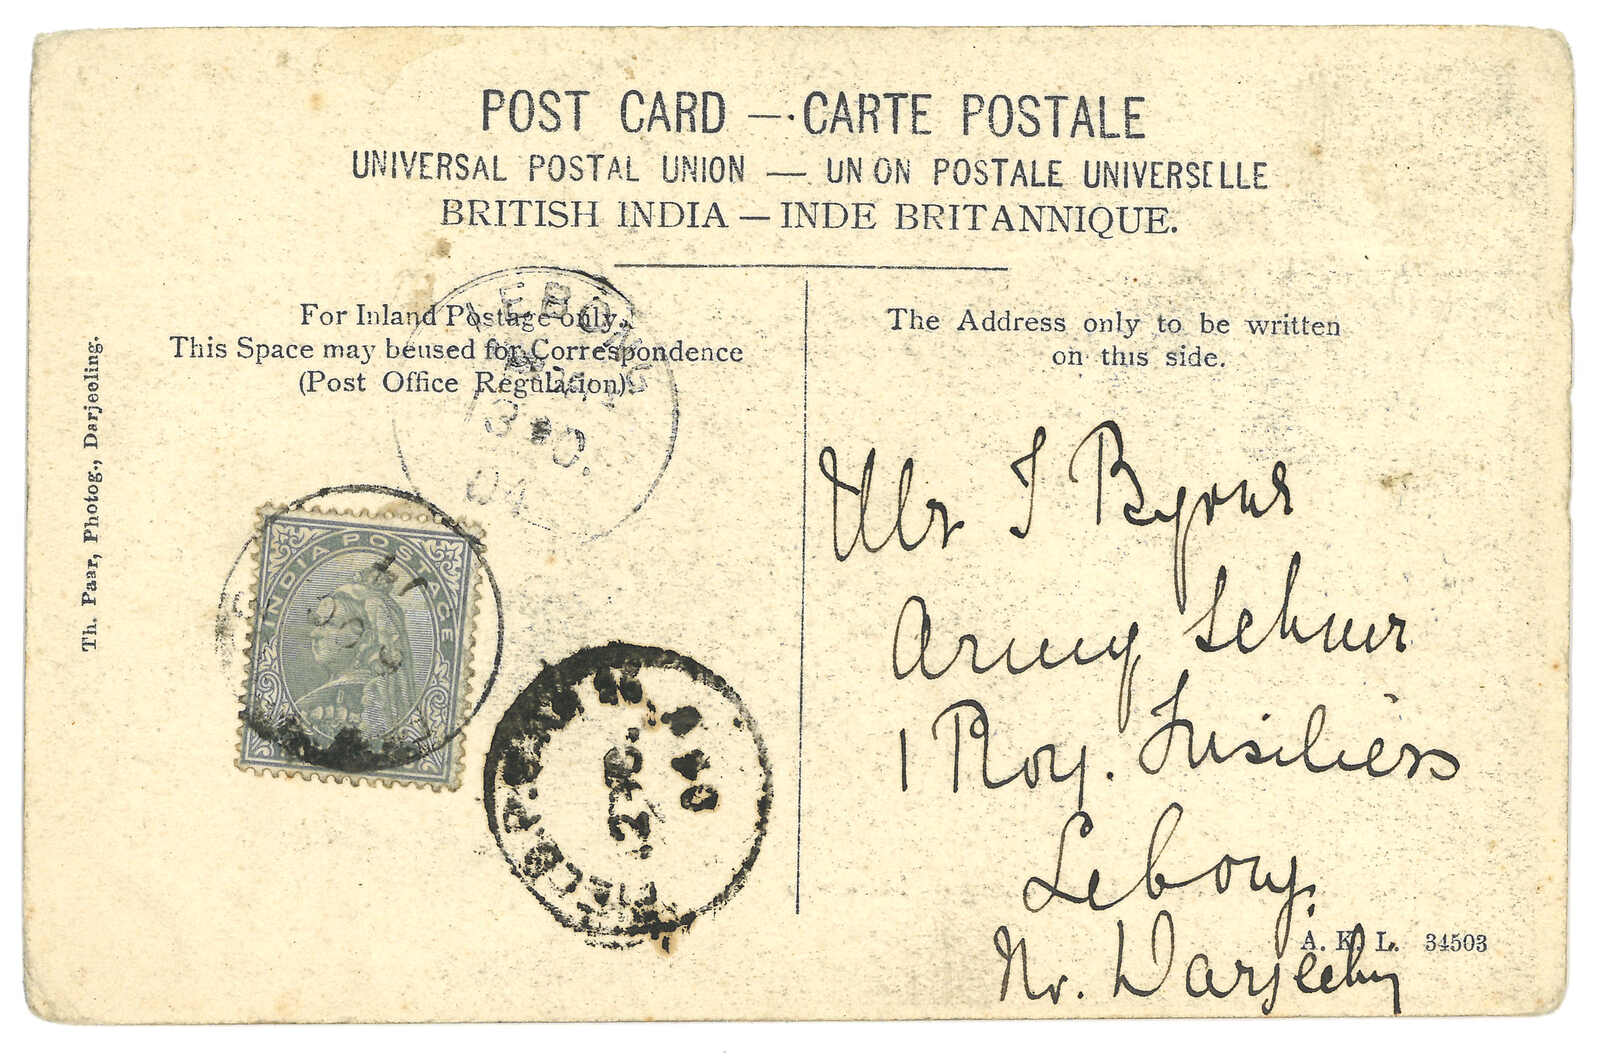 POST CARD — CARTE POSTALE
UNIVERSAL POSTAL UNION — UNION POSTALE UNIVERSELLE
BRITISH INDIA — INDE BRITANNIQUE.
For Inland Postage only.
This Space may be used for Correspondence
(Post Office Regulation)
The Address only to be written
on this side.
Th. Paar, Photog., Darjeeling.
LEBONG
04
INDIA POSTAGE
04
Mr J Byrne
Army Schmr
1 Roy. Fusiliers
Lebong.
Nr. Darjeeling
A. K. L. 34503